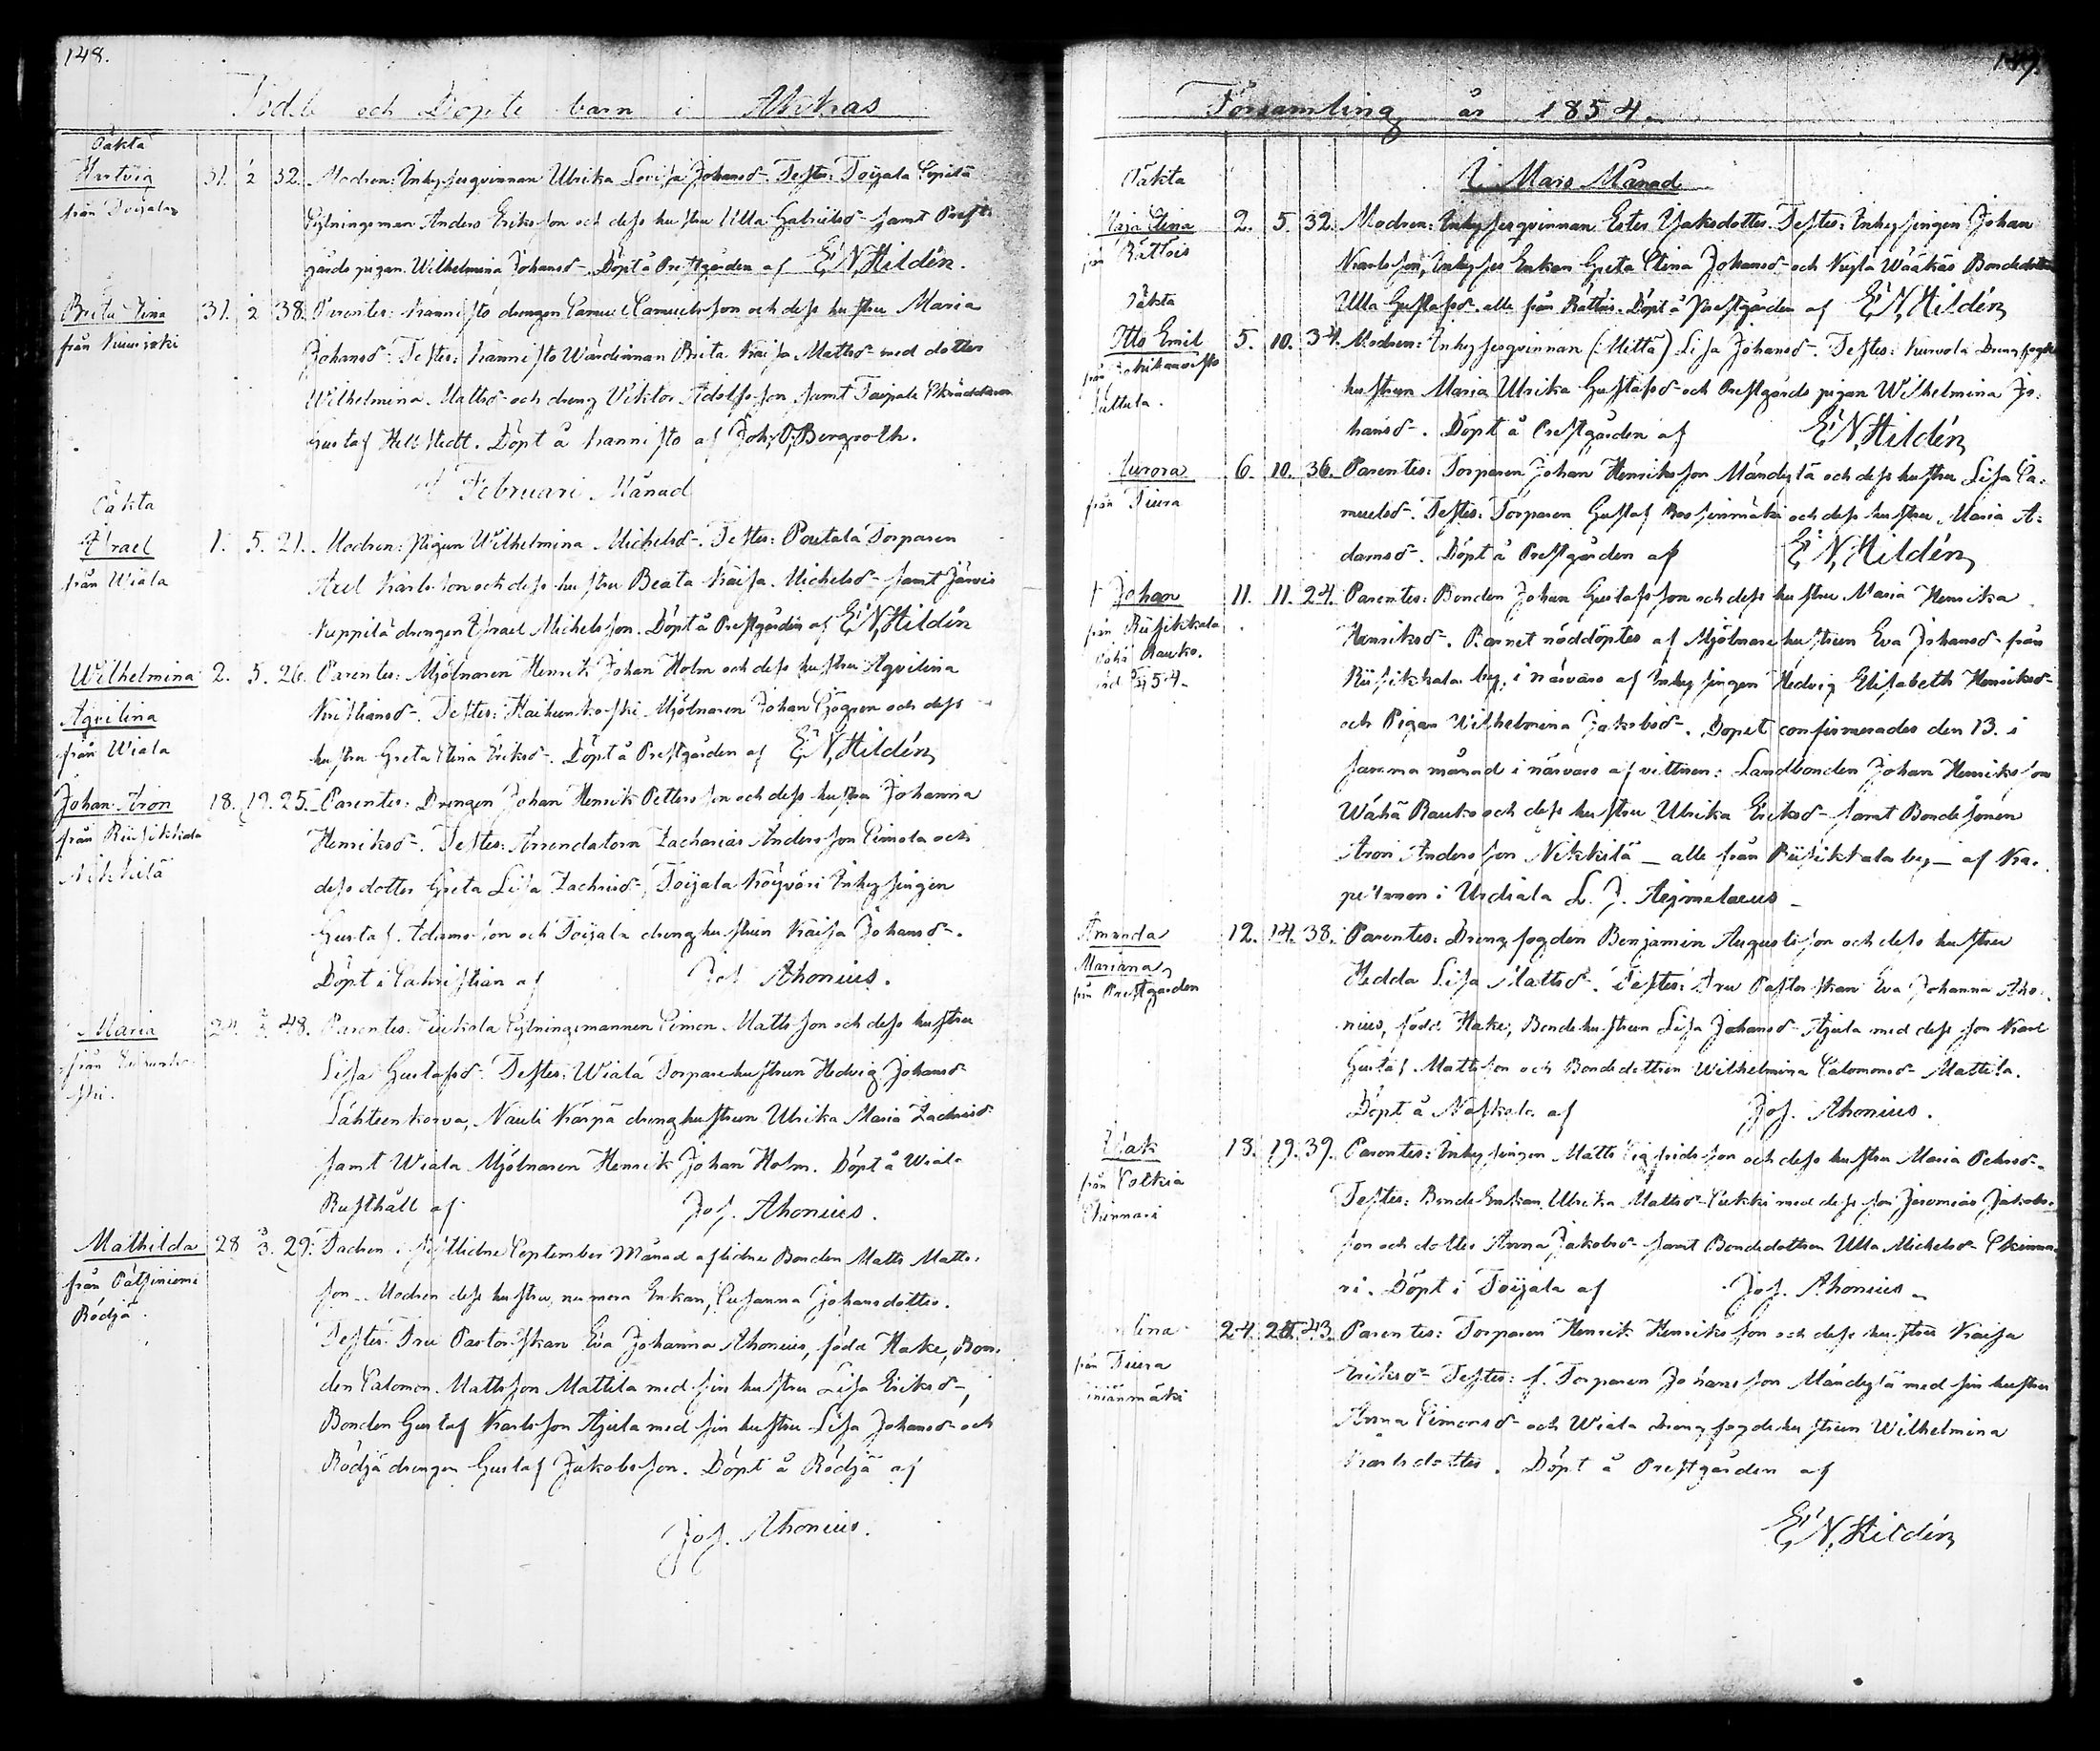 148.
Födde och Döpte barn i Akkas
Oäkta
Hartvig 31. 2 32. Modren: Inhysesqvinnan Ulrika Lovisa Johansd:r Testes: Toijala Sepilä
från Toijala
Fjerdingsman Anders Eriksson och dess hustru Ulla Gabrielsd:r samt Prest-
gårds pigan Wilhelmina Johansd:r Döpt å Prestgården af E N Hildén.
Brita Stina 31. 2 38. Parentes: Kannisto drengen Samuel Samuelsson och dess hustru Maria
från
Johansd:r Testes: Kannisto Wärdinnan Brita Kaisa Mattsd:r med dotter
Wilhelmina Mattsd:r och dreng Viktor Adolfsson samt Taipale Skräddaren
Gustaf Hellstedt. Döpt å Kannisto af Joh. O. Bergroth.
Februari Månad
Oäkta
Israel 1. 5. 21. Modren: Pigan Wilhelmina Michelsd:r Testes: Pontala Torparen
från Wiala
Axel Karlsson och dess hustru Beata Kaisa Michelsd:r samt Järvis
Kuppilä drengen Israel Michelsson. Döpt å Prestgården af E N Hildén
Wilhelmina 2. 5. 26. Parentes: Mjölnaren Henrik Johan Holm och dess hustru Aqvilina
Aqvilina
Kristiansd:r Testes: Haihunkoski Mjölnaren Johan Sjögren och dess
från Wiala
hustru Greta Stina Eriksd:r Döpt å Prestgården af E N Hildén
Johan Aron 18. 19. 25. Parentes: Drengen Johan Henrik Pettersson och dess hustru Johanna
från Riisikkala
Henriksd:r Testes: Arrendatorn Zacharias Andersson Simola och
Nikkilä
dess dotter Greta Lisa Zachrisd:r, Toijala Köyväri Inhysingen
Gustaf Adamsson och Toijala drenghustrun Kaisa Johansd:r.
Döpt i Sakristian af Jos. Ahonius.
Maria 24. 3 48. Parentes: Fjerdingsmannen Simon Mattsson och dess hustru
från
Lisa Gustafsd:r Testes: Wiala Torparehustrun Hedvig Johansd:r
Lähteenkorva, Nauli Kärpä drenghustrun Ulrika Maria Zachrisd:r
samt Wiala Mjölnaren Henrik Johan Holm. Döpt å Wiala
Rusthåll af Jos. Ahonius.
Mathilda 28 3. 29. Fadren i sistlidne September Månad aflidne Bonden Matts Matts-
från Sätsiniemi
son. Modren dess hustru, numera Enkan, Susanna Johansdotter.
Rödjä.
Testes: Fru Pastorskan Eva Johanna Ahonius, född Hake, Bon-
den Salomon Mattsson Mattila med sin hustru Lisa Eriksd:r,
Bonden Gustaf Karlsson Äjula med sin hustru Lisa Johansd:r och
Rödjä drengen Gustaf Jakobsson. Döpt å Rödjä af
Jos. Ahonius.
149.
Församling år 1854.
I Mars Månad
Oäkta
Maja Stina 2. 5. 32. Modren: Inhysesqvinnan Ester Isaksdotter. Testes: Inhysingen Johan
från Rättois
Karlsson, Inhyses Enkan Greta Stina Johansd:r och Nygla Wääkäs Bondedottren
Ulla Gustafsd:r alle från Rättois. Döpt å Prestgården af E N Hildén
Oäkta
Otto Emil 5. 10. 34. Modren: Inhysesqvinnan (: Mitta) Lisa Johansd:r. Testes: Kurvola Drengfogde
från
hustrun Maria Ulrika Gustafsd:r och Prestgårds pigan Wilhelmina Jo-
hansd:r. Döpt å Prestgården af E N Hildén
Aurora 6. 10. 36. Parentes: Torparen Johan Henriksson Mändylä och dess hustru Lisa Sa-
från Tiura
muelsd:r. Testes: Torparen Gustaf och dess hustru Maria A-
damsd:r. Döpt å Prestgården af E N Hildén
† Johan 11. 11. 24. Parentes: Bonden Johan Gustafsson och dess hustru Maria Henrika
från Riisikkala
Henriksd:r. Barnet nöddöptes af Mjölnarehustrun Eva Johansd:r från
Rauko.
Riisikkala by, i närvaro af Inhysingen Hedvig Elisabeth Henriksd:r
54.
och Pigan Wilhelmina Jakobsd:r. Dopet confirmerades den 13. i
samma månad i närvaro af vittnen: Landbonden Johan Henriksson
Wähä Rauko och dess hustru Ulrika Eriksd:r samt Bondesonen
Aron Andersson Nikkilä — alle från Riisikkala by — af Ka-
pellanen i Urdiala L. J. Aejmelaeus —
Amanda 12. 14. 38. Parentes: Drengfogden Benjamin Augustisson och dess hustru
Mariana,
Hedda Lisa Mattsd:r. Testes: Fru Pastorskan Eva Johanna Aho-
från Prestgården
nius, född Hake, Bondehustrun Lisa Johansd:r Äjula med dess son Karl
Gustaf Mattsson och Bondedottren Wilhelmina Salomonsd:r Mattila.
Döpt å Naskala af Jos. Ahonius.
Isak 18. 19. 39. Parentes: Inhysingen Matts Sigfridsson och dess hustru Maria Pehrsd:r.
från Sotkia
Testes: Bonde Enkan Ulrika Mattsd:r Pukki med dess son Jeremias Jakobs-
Skinnari
son och dotter Anna Jakobsd:r samt Bondedottren Ulla Michelsd:r Skinna-
ri. Döpt i Toijala af Jos. Ahonius.
24. 43. Parentes: Torparen Henrik Henriksson och dess hustru Kaisa
från Tiura
Eriksd:r Testes: f. Torparen Johansson Mändylä med sin hustru
Anna Simonsd:r och Wiala drengfogdehustrun Wilhelmina
Karlsdotter. Döpt å Prestgården af
E N Hildén